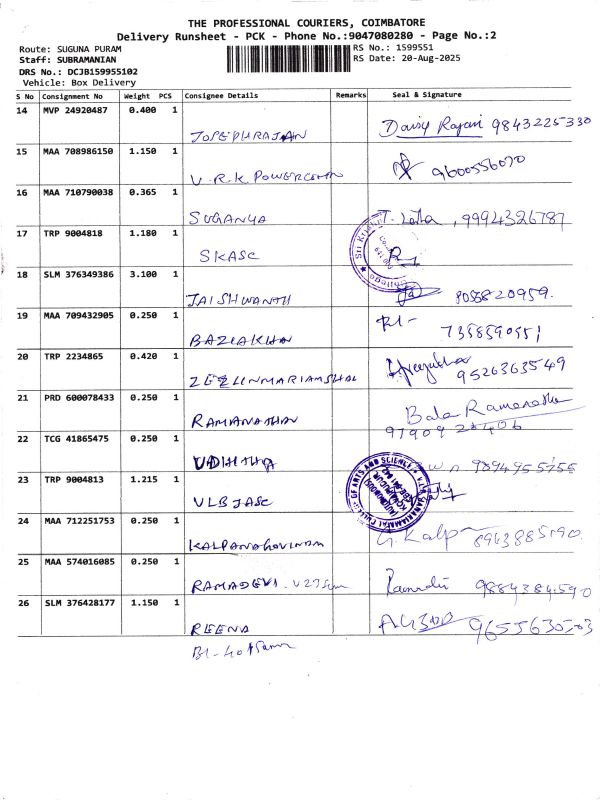 THE PROFESSIONAL COURIERS, COIMBATORE
Delivery Runsheet - PCK - Phone No.:9047080280 - Page No.:2
Route: SUGUNA PURAM RS No.: 1599551
Staff: SUBRAMANIAN RS Date: 20-Aug-2025
DRS No.: DCJB159955102
Vehicle: Box Delivery
S No Consignment No Weight PCS Consignee Details Remarks Seal & Signature
14 MVP 24920487 0.400 1
JOSEPHRAJAN Daisy Rajari 9843225330
15 MAA 708986150 1.150 1
V.R.K. POWERCOM 9600556070
16 MAA 710790038 0.365 1
SUGANYA T. Latha, 9994326787
17 TRP 9004818 1.180 1
SKASC
18 SLM 376349386 3.100 1
JAISHWANTH 8058820959.
19 MAA 709432905 0.250 1
BAZLAKHAN 7358590551
20 TRP 2234865 0.420 1
ZEZLINMARIAMSHAL 9526363549
21 PRD 600078433 0.250 1
RAMANATHAN Bala Ramanathan
22 TCG 41865475 0.250 1
UDHITHA
23 TRP 9004813 1.215 1
VLBJASC
24 MAA 712251753 0.250 1
KALPANAGOVINDAM G. Kalp
25 MAA 574016085 0.250 1
RAMADEVI 9884384590
26 SLM 376428177 1.150 1
REENA